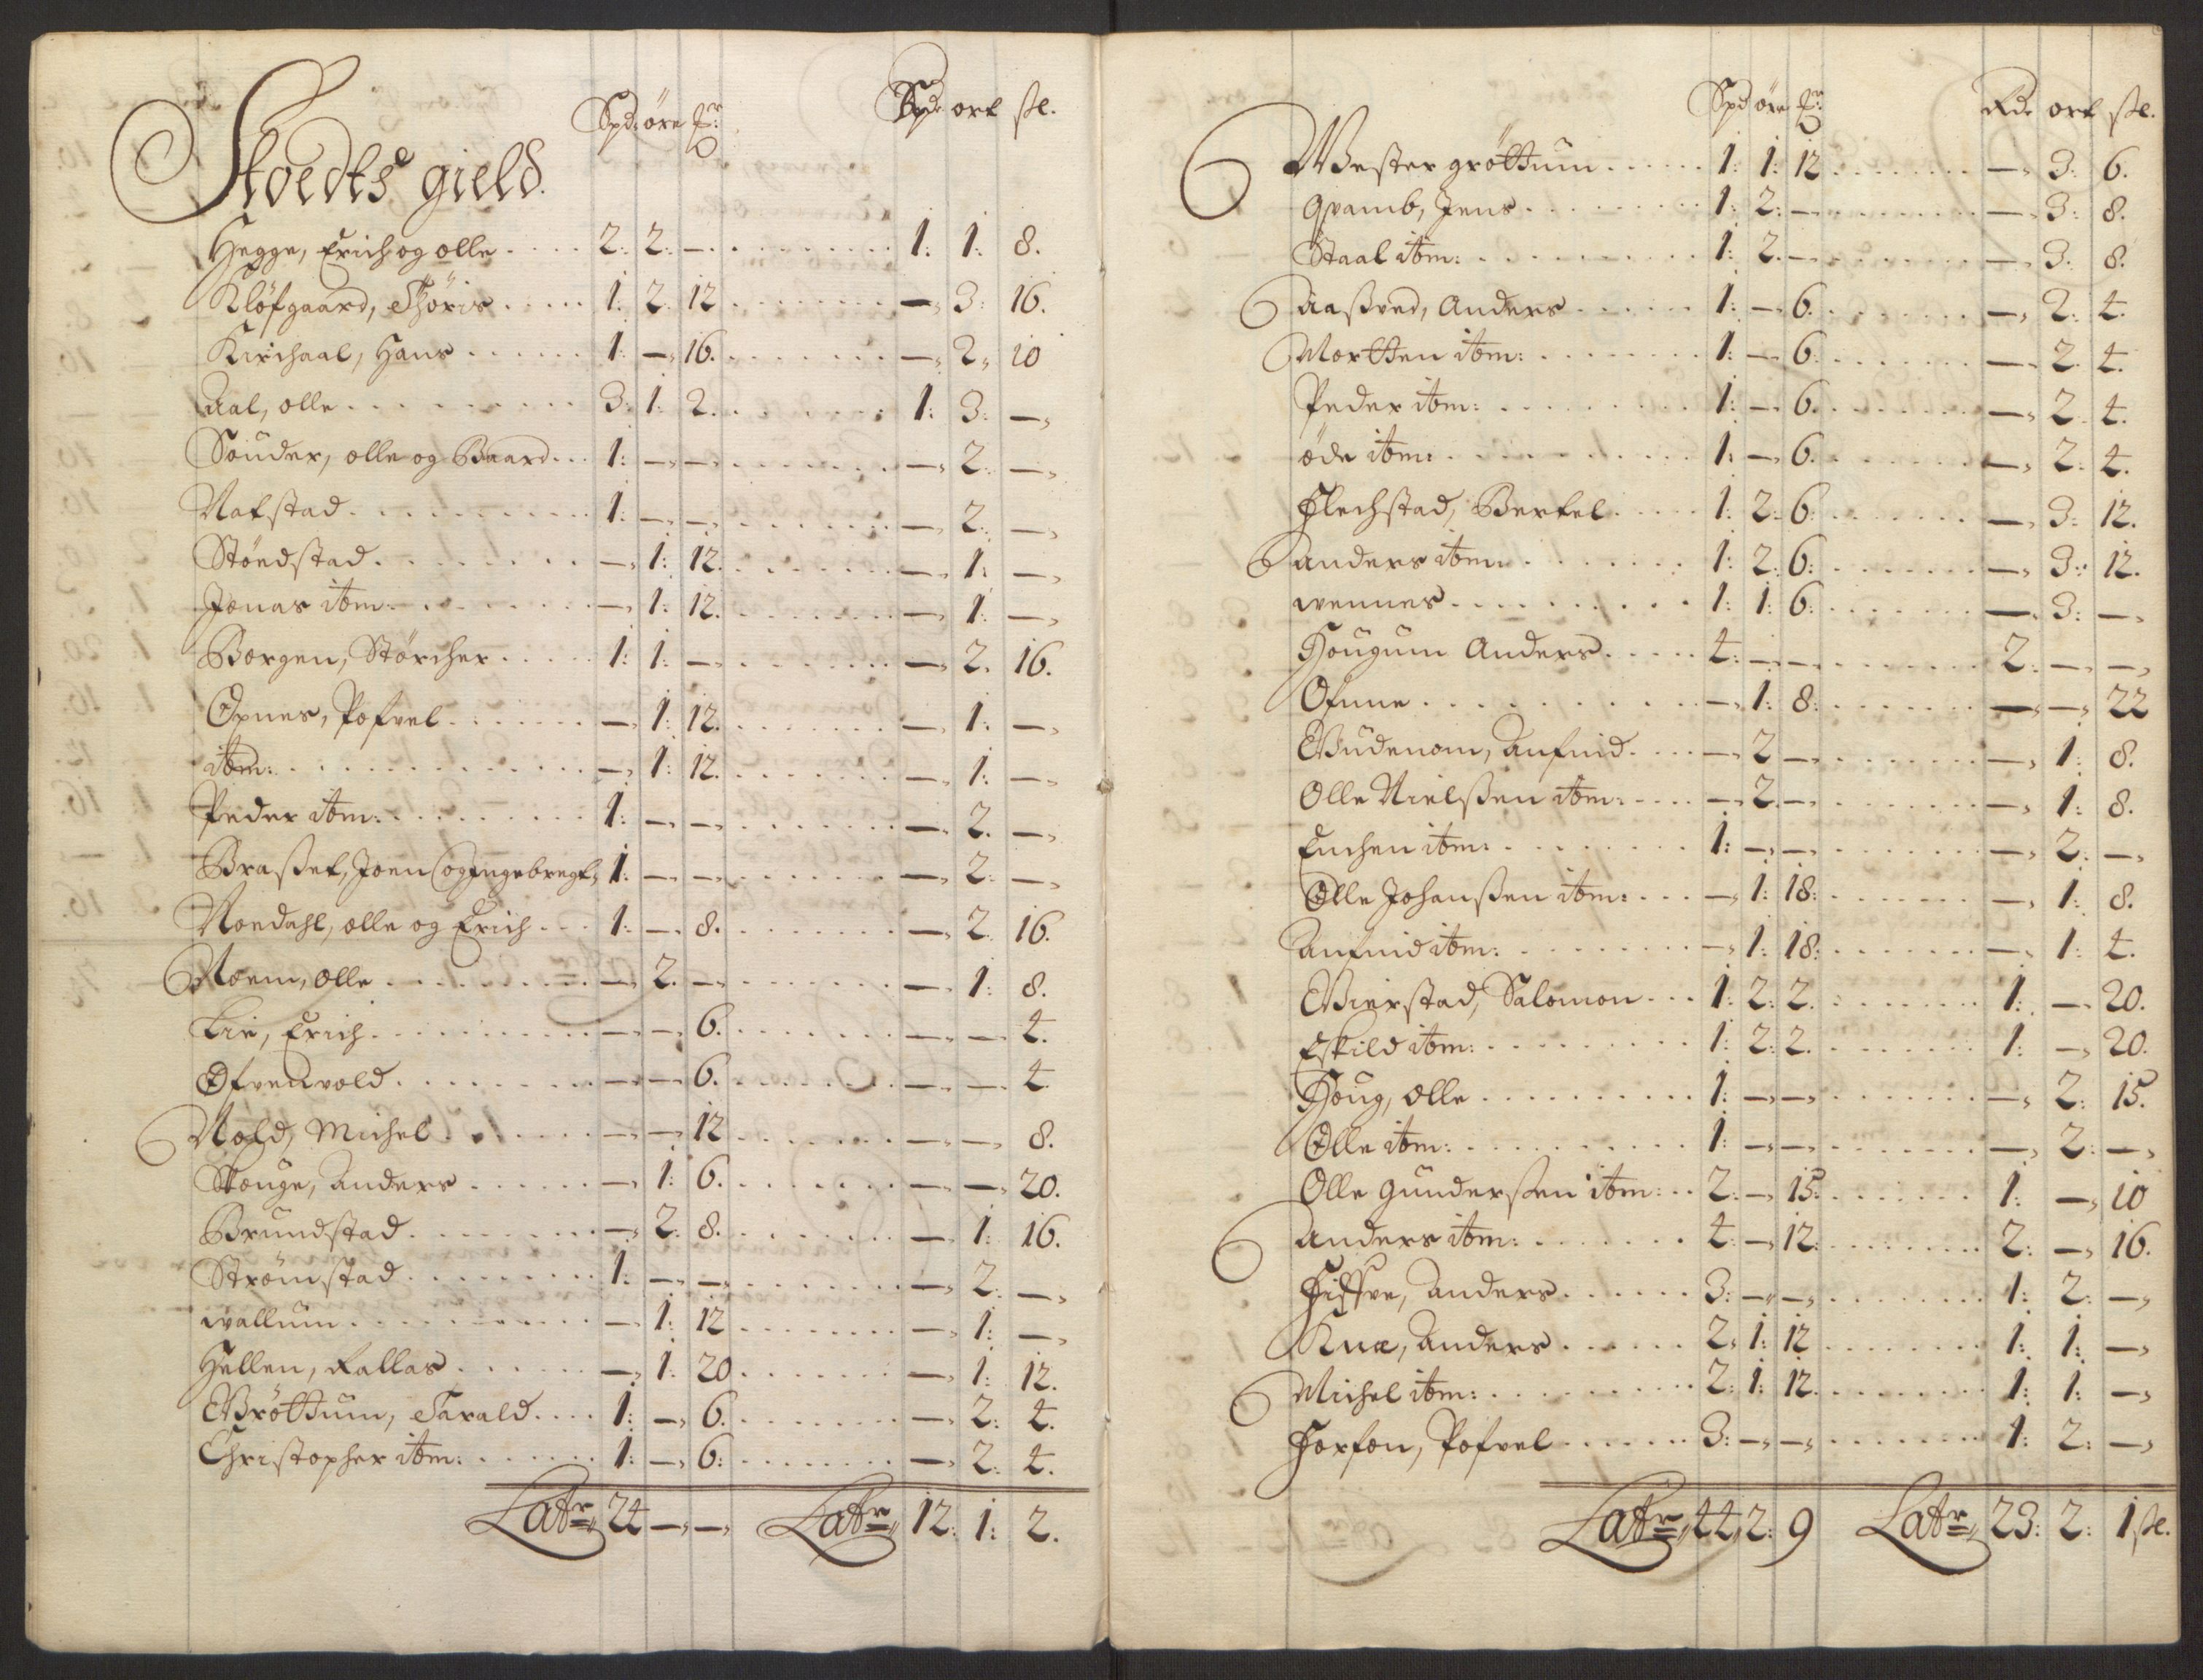 Spd: öre
Spd ort sk.
Stoedts gield.
Hegge, Erich og olle . . . . 2: 2: — . . . . . . . 1: 1: 8.
Klöfgaard, Siöris . . . . . 1: 2 12 . . . . . . . — 3: 16.
Kirchaal, Hans . . . . . . 1: — 16. . . . . . . . — 2, 10
Aal, olle . . . . . . . . . 3: 1: 2. . . . . . . . 1: 3: —
Souder, olle og Baard . . . 1: — — . . . . . . . — 2: —
Nafstad . . . . . . . . . . 1: — — . . . . . . . — 2: —
Stöedstad . . . . . . . . — 1: 12. . . . . . . . — 1: —
Jonas itm: . . . . . . . . — 1: 12. . . . . . . . — 1: —
Borgen, Störcher . . . . . 1: 1: — . . . . . . . — 2. 16.
Opnes, Pofvel . . . . . . . — 1: 12. . . . . . . . — 1: —
itm: . . . . . . . . . . . . — 1: 12. . . . . . . . — 1: —
Peder itm: . . . . . . . . . 1: — — . . . . . . . — 2. —
Brasset, Joen og Ingebregt, 1: — — . . . . . . . — 2: —
Noedahl, olle og Erich . . . 1: — 8. . . . . . . . — 2 16.
Noem, olle . . . . . . . . . — 2. — . . . . . . . — 1: 8.
Lie, Erich . . . . . . . . . — — 6. . . . . . . . — — 4.
Ofvenvold . . . . . . . . . — — 6. . . . . . . . — — 4
Vold, Michel . . . . . . . . — — 12 . . . . . . . — — 8.
Skouge, Anders . . . . . . — 1: 6. . . . . . . . — — 20.
Brundstad . . . . . . . . . — 2: 8. . . . . . . . — 1: 16.
Strömstad . . . . . . . . . 1: — — . . . . . . . — 2: —
wallum . . . . . . . . . . . — 1: 12 . . . . . . . — 1: —
Hellen, Rallas . . . . . . — 1: 20 . . . . . . . — 1: 12.
Gröttum, Tarald . . . . 1: — 6. . . . . . . . — 2: 4.
Christopher itm: . . . . . . 1: — 6: . . . . . . . — 2: 4.
Latr 24 — — Latr 12: 1: 2.
Spd öre
Rd. ort sk.
Wester gröttum . . . . . 1: 1: 12 . . . . . . . — 3: 6.
Qvamb, Jens . . . . . . . . 1: 2: — . . . . . . . — 3: 8.
Staal itm: . . . . . . . . . 1: 2. — . . . . . . . — 3: 8.
Aasved, Anders . . . . . . 1: — 6. . . . . . . . — 2: 4.
Mortten itm: . . . . . . . . 1: — 6: . . . . . . . — 2. 4.
Peder itm: . . . . . . . . . 1: — 6. . . . . . . . — 2. 4.
öde itm: . . . . . . . . . . 1: — 6. . . . . . . . — 2: 4.
Flechstad, Berfel . . . . . 1: 2: 6: . . . . . . . — 3: 12.
Anders itm: . . . . . . . . 1: 2: 6: . . . . . . . — 3: 12.
wennes . . . . . . . . . . 1: 1: 6: . . . . . . . — 3: —
Hougum Anders . . . . . 4: — — . . . . . . . 2: — —
Ofinne . . . . . . . . . . . — 1: 8: . . . . . . . — — 22
Budenom, Anfind . . . . — 2 — . . . . . . . — 1: 8.
Olle Nielsen itm: . . . . — 2. — . . . . . . . — 1: 8.
Enchen itm: . . . . . . . . 1: — — . . . . . . . — 2: —
Olle Johansen itm: . . . . — 1: 18: . . . . . . . — 1: 8.
Anfind itm: . . . . . . . . — 1: 18: . . . . . . . — 1: 4.
Bierstad, Salomon . . . 1: 2: 2. . . . . . . . 1: — 20.
Eskild itm: . . . . . . . . . 1: 2: 2. . . . . . . . 1: — 20.
Houg, olle . . . . . . . . . 1: — — . . . . . . . — 2: 15.
Olle itm: . . . . . . . . . . 1: — — . . . . . . . — 2: —
Olle gundersen itm: . . 2: — 15: . . . . . . . 1: — 10
Anders itm: . . . . . . . . 4: — 12: . . . . . . . 2: — 16.
Anders . . . . . . 3: — — . . . . . . . 1: 2: —
Knæ, Anders . . . . . . . 2, 1: 12 . . . . . . . 1: 1: —
Michel itm: . . . . . . . . . 2: 1: 12. . . . . . . . 1: 1: —
Forfon, Pofvel . . . . . . 3: — — . . . . . . . 1: 2: —
Latr 44 2: 9 Latr 23: 2: 1 sk.